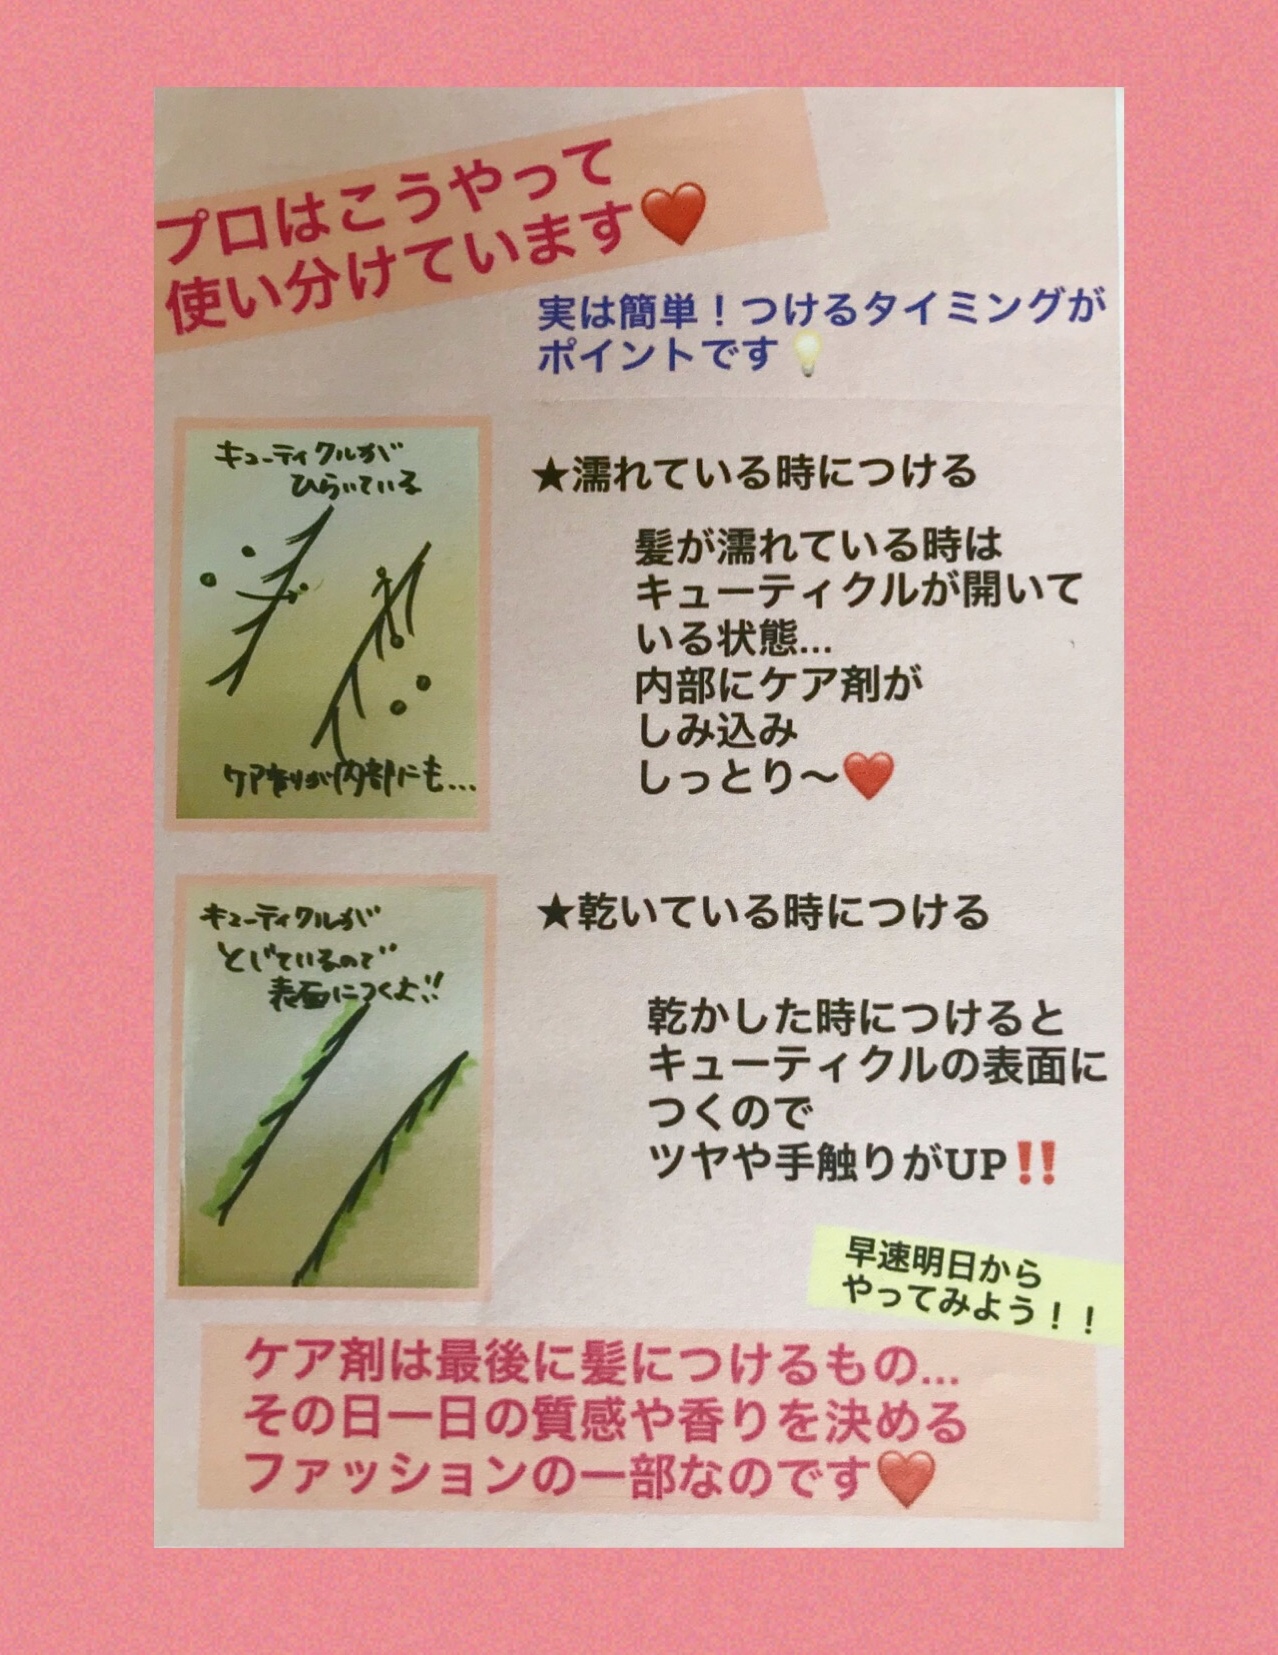 プロはこうやって
使い分けています❤️
実は簡単！つけるタイミングが
ポイントです💡
キューティクルが
ひらいている
ケア剤が内部にも...
★濡れている時につける
髪が濡れている時は
キューティクルが開いて
いる状態...
内部にケア剤が
しみ込み
しっとり〜❤️
キューティクルが
とじているので
表面につくよ!!
★乾いている時につける
乾かした時につけると
キューティクルの表面に
つくので
ツヤや手触りがUP‼️
早速明日から
やってみよう！！
ケア剤は最後に髪につけるもの...
その日一日の質感や香りを決める
ファッションの一部なのです❤️